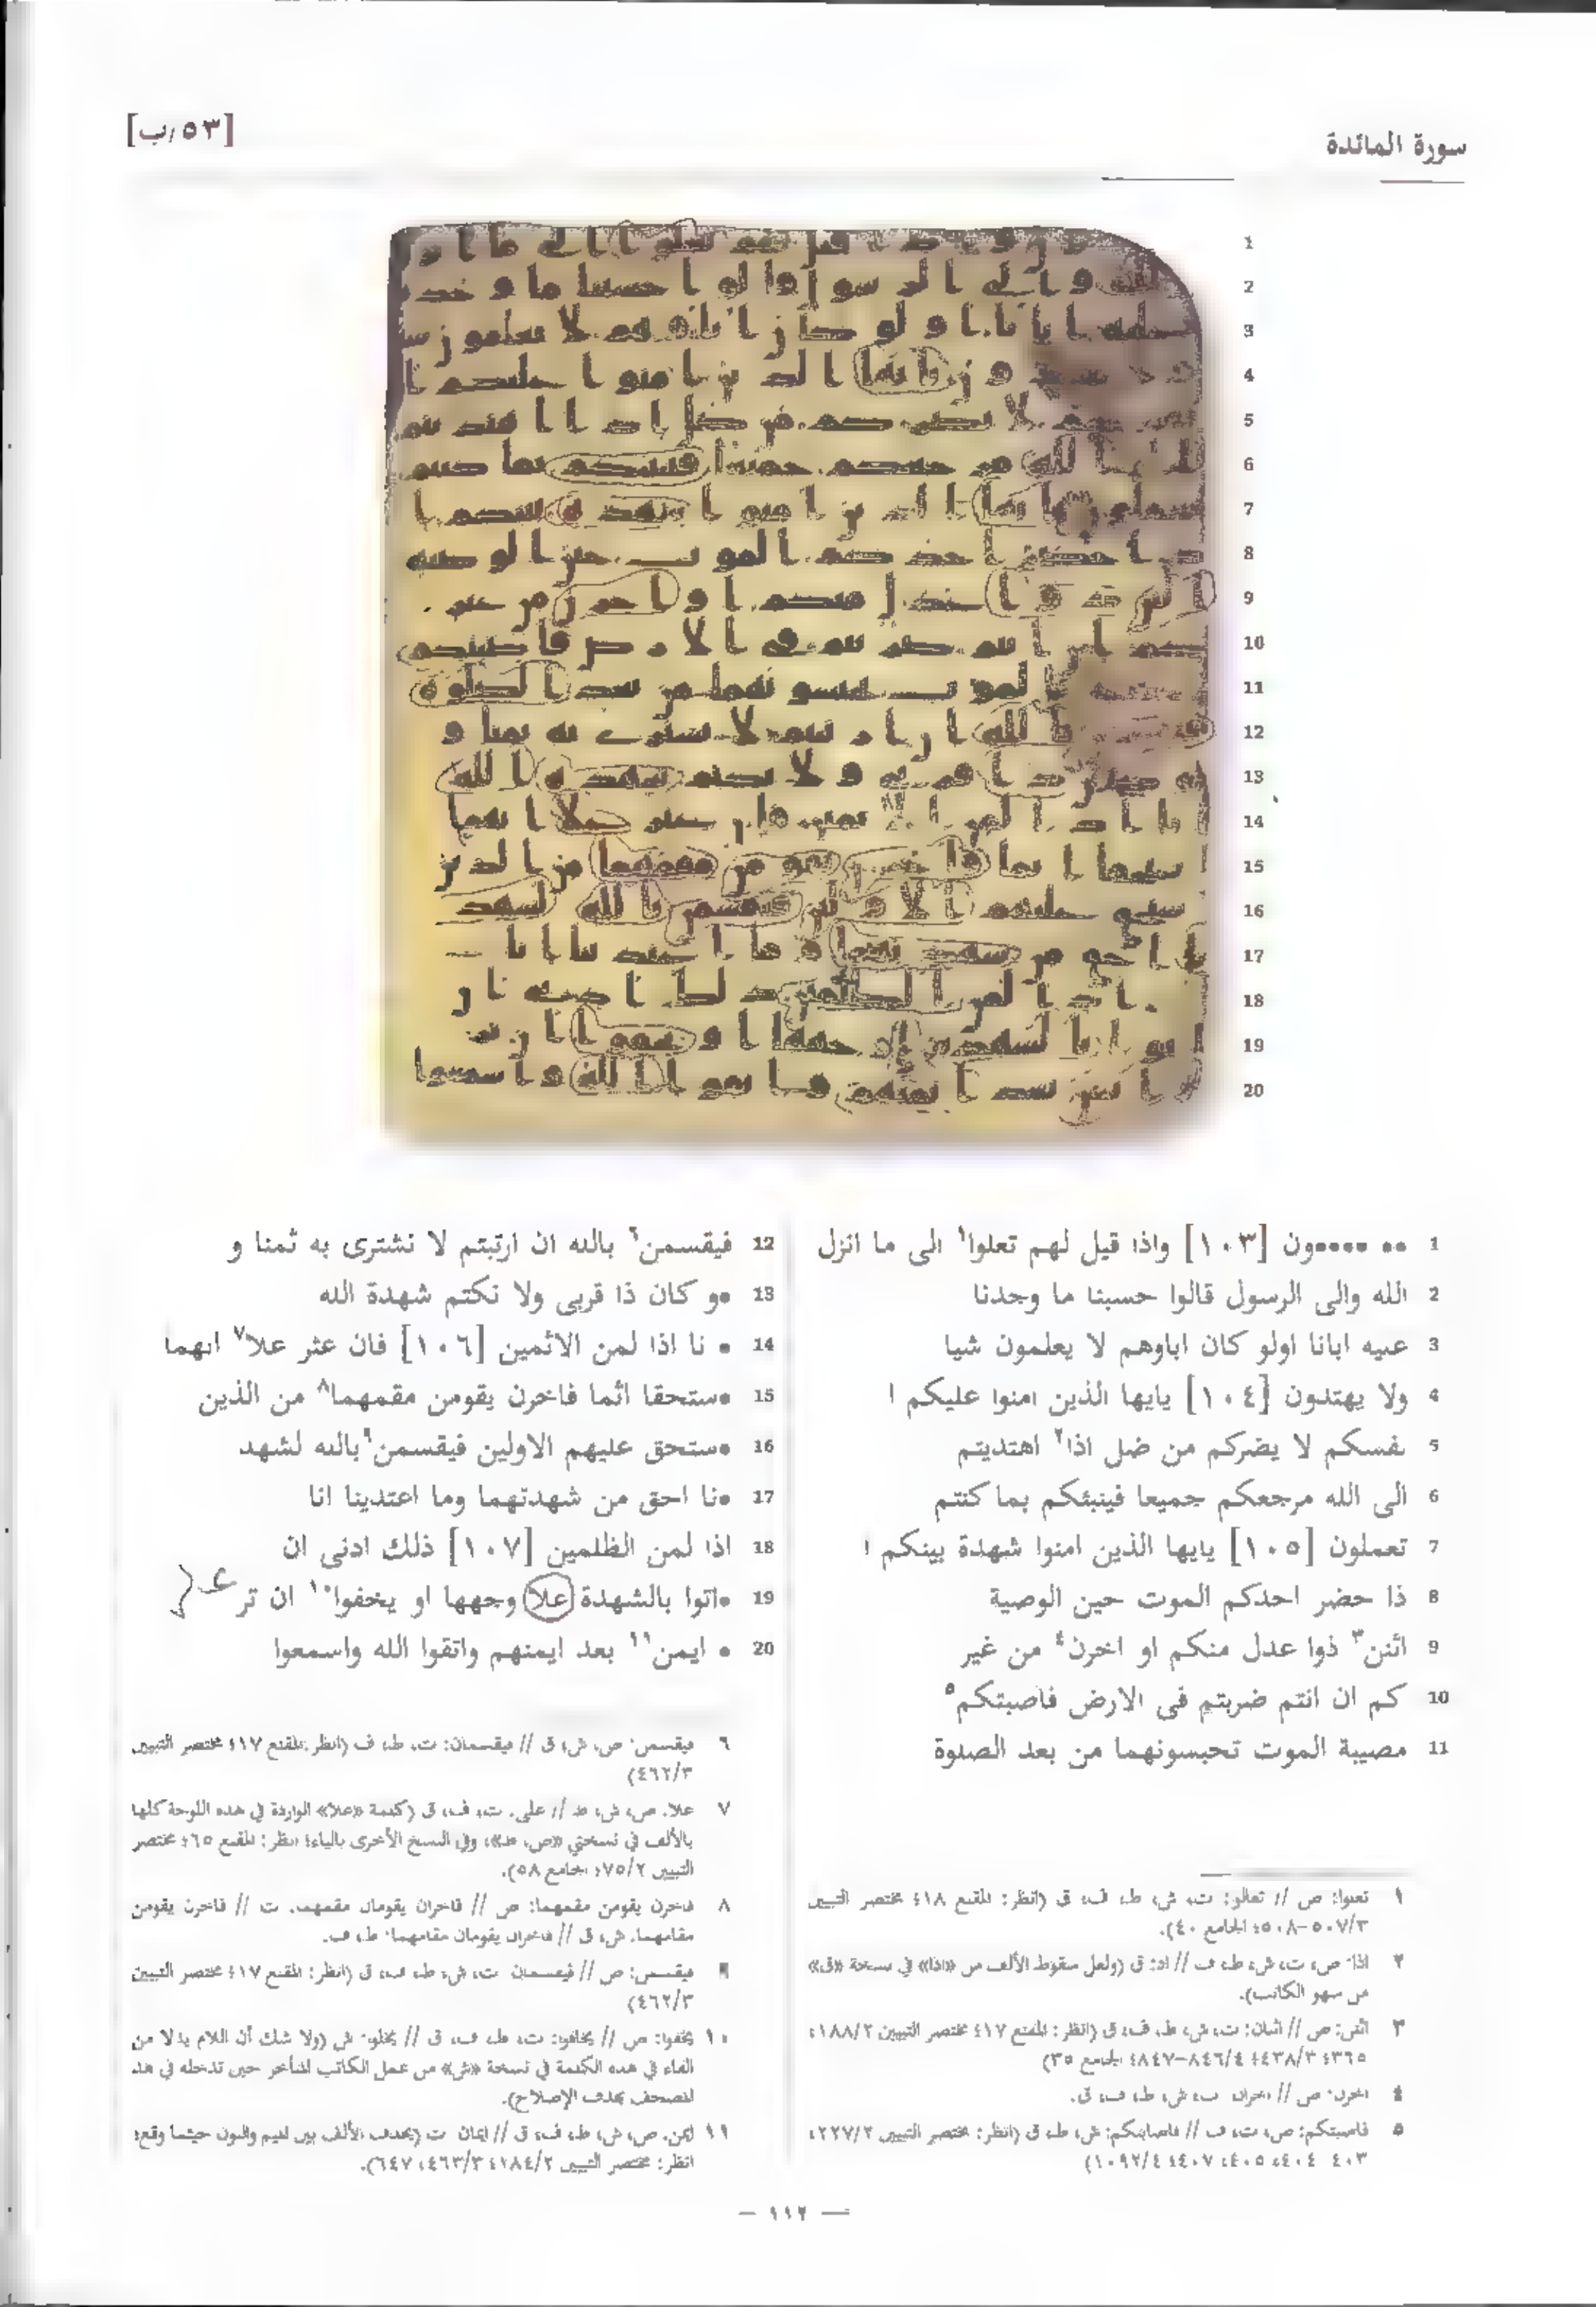 [٥٣/ب]
سورة المائدة
1 •• •••••ون [١٠٣] واذا قيل لهم تعلوا١ الى ما انزل
2 الله والى الرسول قالوا حسبنا ما وجدنا
3 عليه ابانا اولو كان اباوهم لا يعلمون شيا
4 ولا يهتدون [١٠٤] يايها الذين امنوا عليكم ا
5 نفسكم لا يضركم من ضل اذا٢ اهتديتم
6 الى الله مرجعكم جميعا فينبئكم بما كنتم
7 تعملون [١٠٥] يايها الذين امنوا شهدة بينكم ا
8 ذا حضر احدكم الموت حين الوصية
9 اثنن٣ ذوا عدل منكم او اخرن٤ من غير
10 كم ان انتم ضربتم فى الارض فاصبتكم٥
11 مصيبة الموت تحبسونهما من بعد الصلوة
12 فيقسمن٦ بالله ان ارتبتم لا نشترى به ثمنا و
13 •و كان ذا قربى ولا نكتم شهدة الله
14 • نا اذا لمن الاثمين [١٠٦] فان عثر علا٧ انهما
15 •ستحقا اثما فاخرن يقومن مقمهما٨ من الذين
16 •ستحق عليهم الاولين فيقسمن٩ بالله لشهد
17 •نا احق من شهدتهما وما اعتدينا انا
18 اذا لمن الظلمين [١٠٧] ذلك ادنى ان
19 •اتوا بالشهدة علا وجهها او يخفوا١٠ ان تر
20 • ايمن١١ بعد ايمنهم واتقوا الله واسمعوا
١ تعلوا: ص // تعالوا: ت، ش، ط، ف، ق (انظر: المقنع ١٨؛ مختصر التبيين
٥٠٧/٣-٥٠٨؛ الجامع ٤٠).
٢ اذا: ص، ت، ش، ط، ف // اذ: ق (ولعل سقوط الألف من «اذا» في نسخة «ق»
من سهو الكاتب).
٣ اثنن: ص // اثنان: ت، ش، ط، ف، ق (انظر: المقنع ١٧؛ مختصر التبيين ١٨٨/٢؛
٣٦٥؛ ٤٣٨/٣؛ ٨٤٦/٤-٨٤٧؛ الجامع ٣٥)
٤ اخرن: ص // اخران: ت، ش، ط، ف، ق.
٥ فاصبتكم: ص، ت، ف // فاصابتكم: ش، ط، ق (انظر: مختصر التبيين ٢٢٧/٢؛
٤٠٣، ٤٠٤، ٤٠٥، ٤٠٧؛ ١٠٩٢/٤)
٦ فيقسمن: ص، ش، ق // فيقسمان: ت، ط، ف (انظر: المقنع ١٧؛ مختصر التبيين
٤٦٢/٣)
٧ علا: ص، ش، ط // على: ت، ف، ق (كلمة «علا» الواردة في هذه اللوحة كلها
بالألف في نسختي «ص، ط»، وفي النسخ الأخرى بالياء؛ انظر: المقنع ٦٥؛ مختصر
التبيين ٧٥/٢؛ الجامع ٥٨).
٨ فاخرن يقومن مقمهما: ص // فاخران يقومان مقمهما: ت // فاخرن يقومن
مقامهما: ش، ق // فاخران يقومان مقامهما: ط، ف.
٩ فيقسمن: ص // فيقسمان: ت، ش، ط، ف، ق (انظر: المقنع ١٧؛ مختصر التبيين
٤٦٢/٣)
١٠ يخفوا: ص // يخافوا: ت، ط، ف، ق // يخلوا: ش (ولا شك أن اللام بدلا من
الفاء في هذه الكلمة في نسخة «ش» من عمل الكاتب المتأخر حين تدخله في هذ
المصحف بهدف الإصلاح).
١١ ايمن: ص، ش، ط، ف، ق // ايمان: ت (بحذف الألف بين الميم والنون حيثما وقع؛
انظر: مختصر التبيين ١٨٤/٢؛ ٤٦٣/٣، ٦٤٧).
— ١١٢ —